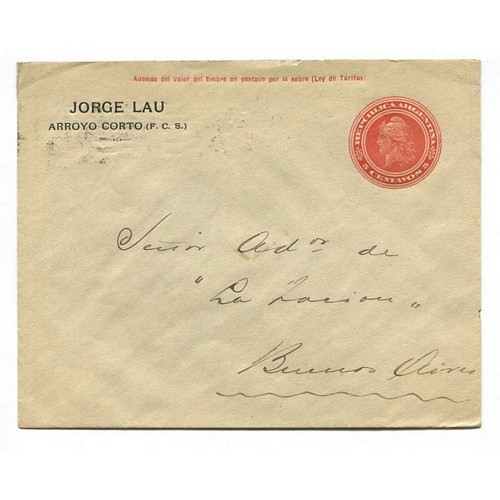 Además del valor del timbre un centavo por el sobre (Ley de Tarifas)
JORGE LAU
ARROYO CORTO (F. C. S.)
REPUBLICA ARGENTINA
5 CENTAVOS 5
Señor Ador de
"La Nacion"
Buenos Aires